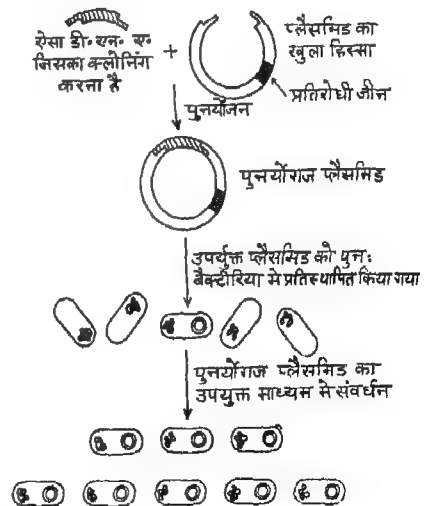 ऐसा डी॰ एन॰ ए॰
जिसका क्लोनिंग
करना है
+
प्लैसमिड का
खुला हिस्सा
प्रतिरोधी जीन
पुनर्योजन
पुनर्योगज प्लैसमिड
उपर्युक्त प्लैसमिड को पुनः
बैक्टीरिया मे प्रतिस्थापित किया गया
पुनर्योगज प्लैसमिड का
उपयुक्त माध्यम मे संवर्धन